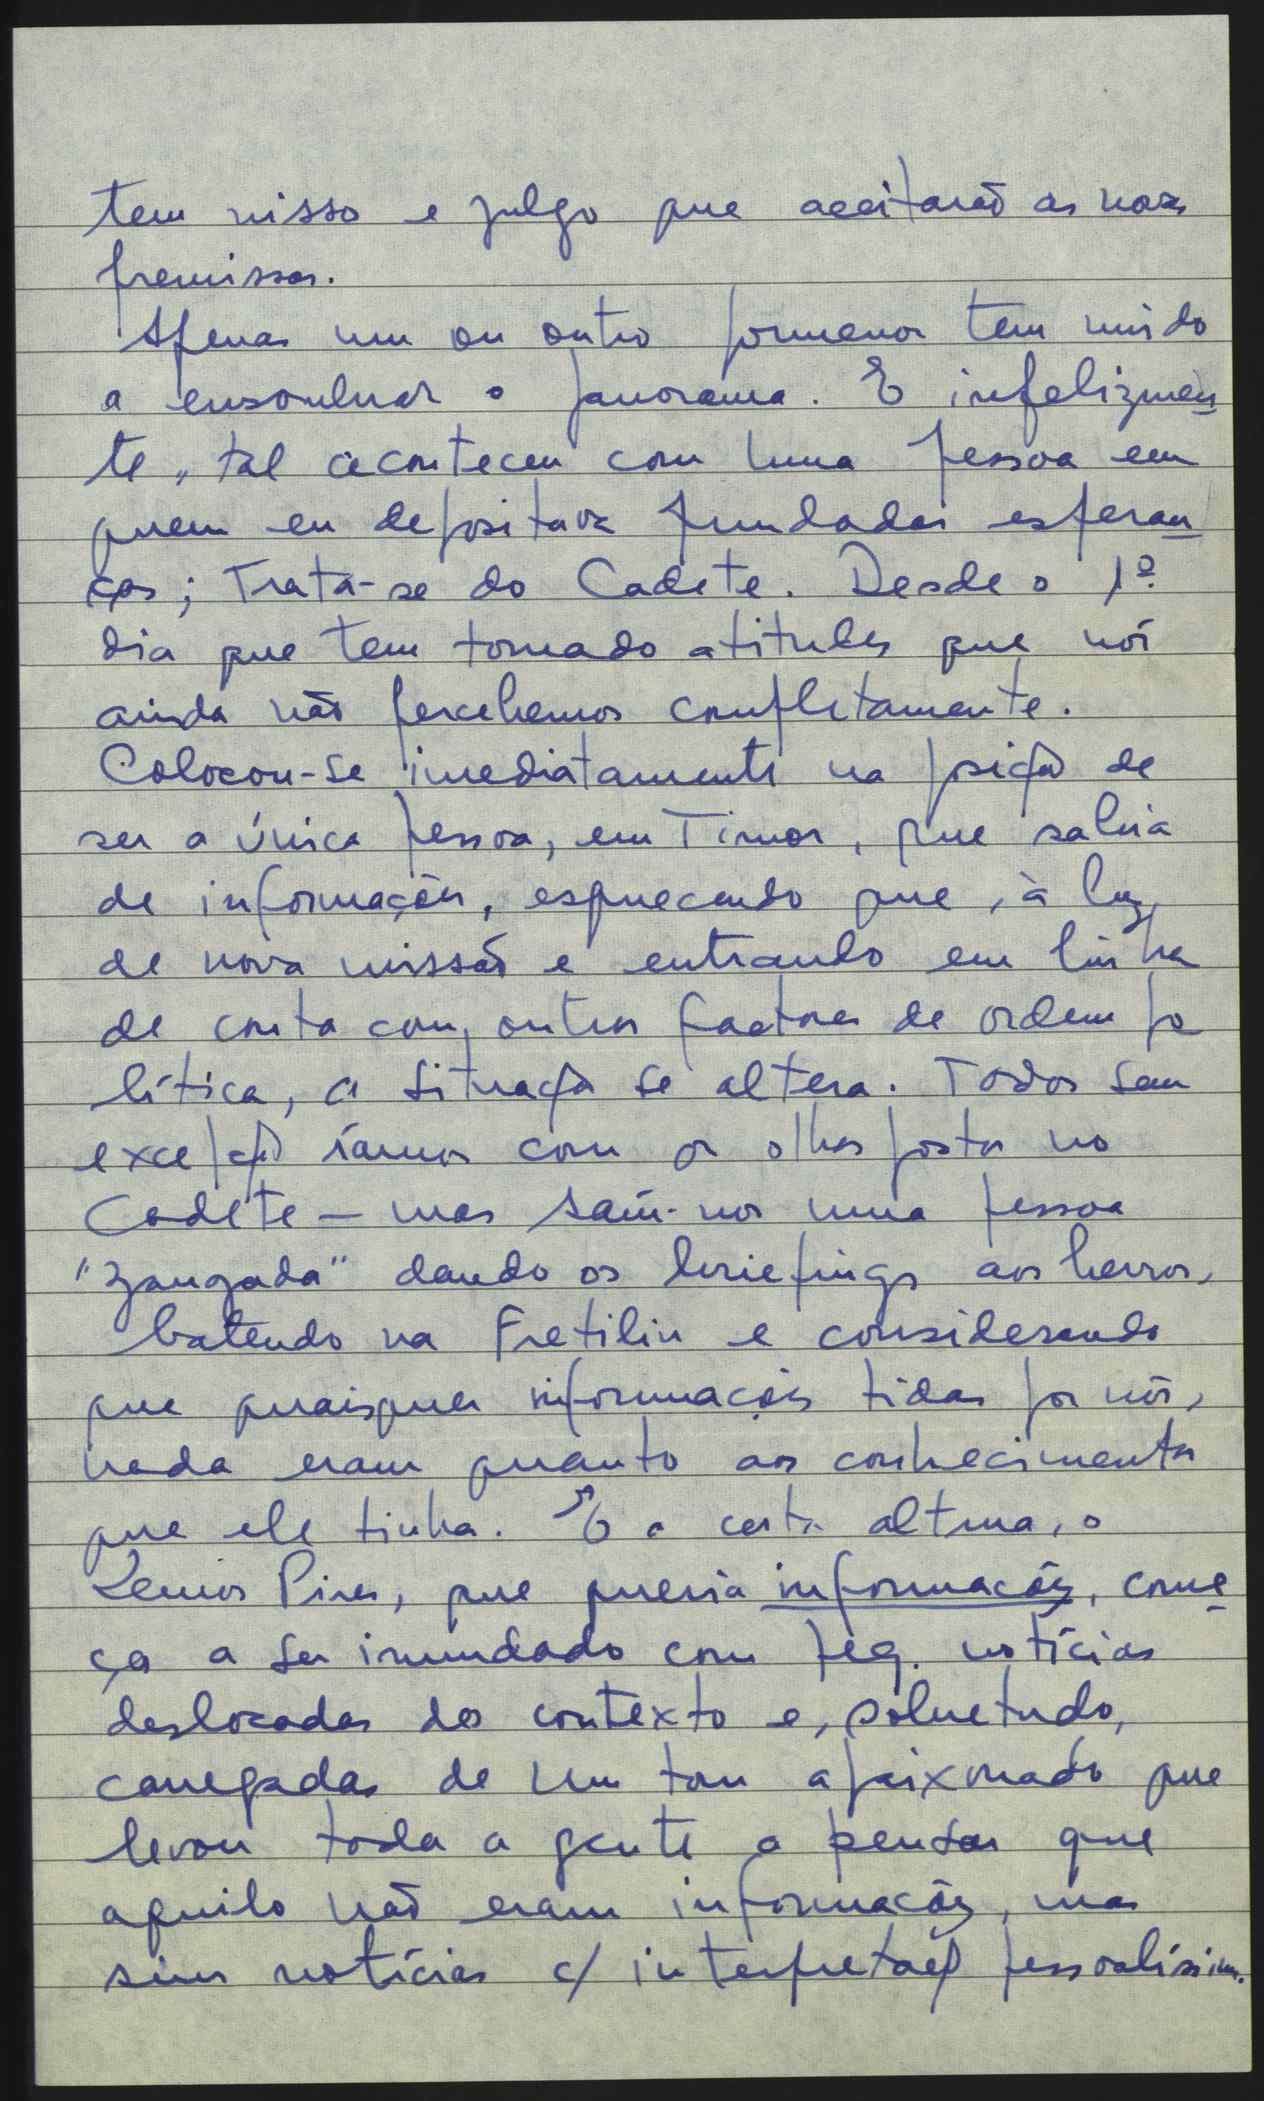 tem nisso e julgo que aceitarão as nossas
premissas.
Apenas um ou outro pormenor tem vindo
a ensombrar o panorama. E infelizmen
te, tal aconteceu com uma pessoa em
quem eu depositava fundadas esperan
ças; Trata-se do Cadete. Desde o 1º
dia que tem tomado atitudes que nós
ainda não percebemos completamente.
Colocou-se imediatamente na posição de
ser a única pessoa, em Timor, que sabia
de informações, esquecendo que, à luz
de nova missão e entrando em linha
de conta com outros factores de ordem po
lítica, a situação se altera. Todos sem
excepção íamos com os olhos postos no
Cadete — mas saiu-nos uma pessoa
"zangada" dando os briefings aos berros,
batendo na Fretilin e considerando
que quaisquer informações tidas por nós,
nada eram quanto aos conhecimentos
que ele tinha. E a certa altura, o
Lemos Pires, que queria informações, come
ça a ser inundado com peq. notícias
deslocadas do contexto e, sobretudo,
carregadas de um tom apaixonado que
levou toda a gente a pensar que
aquilo não eram informações, mas
sim notícias c/ interpretação pessoalíssima.